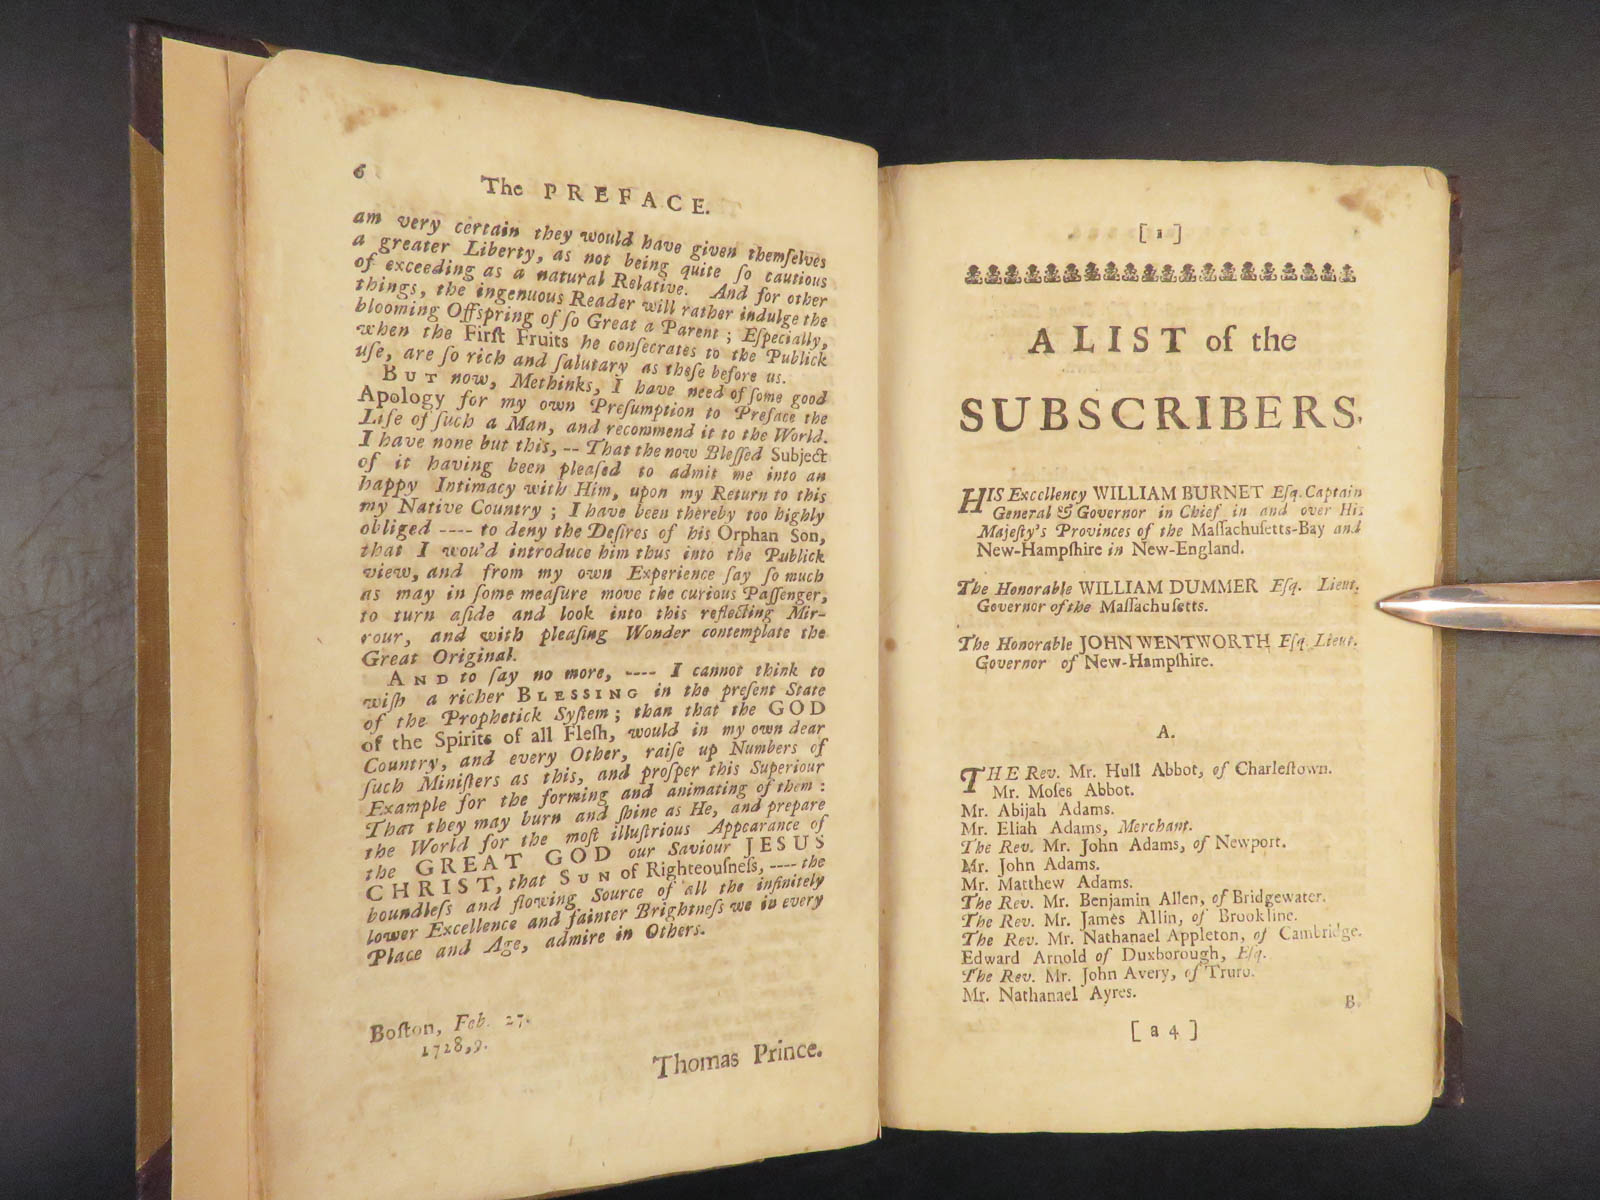 6
The PREFACE.
am very certain they would have given themſelves
a greater Liberty, as not being quite ſo cautious
of exceeding as a natural Relative. And for other
things, the ingenuous Reader will rather indulge the
blooming Offspring of ſo Great a Parent ; Eſpecially,
when the Firſt Fruits he conſecrates to the Publick
uſe, are ſo rich and ſalutary as theſe before us.
BUT now, Methinks, I have need of ſome good
Apology for my own Preſumption to Preface the
Life of ſuch a Man, and recommend it to the World.
I have none but this, -- That the now Bleſſed Subject
of it having been pleaſed to admit me into an
happy Intimacy with Him, upon my Return to this
my Native Country ; I have been thereby too highly
obliged ---- to deny the Deſires of his Orphan Son,
that I wou'd introduce him thus into the Publick
view, and from my own Experience ſay ſo much
as may in ſome meaſure move the curious Paſſenger,
to turn aſide and look into this reflecting Mir-
rour, and with pleaſing Wonder contemplate the
Great Original.
AND to ſay no more, ---- I cannot think to
wiſh a richer BLESSING in the preſent State
of the Prophetick Syſtem ; than that the GOD
of the Spirits of all Fleſh, would in my own dear
Country, and every Other, raiſe up Numbers of
ſuch Miniſters as this, and proſper this Superiour
Example for the forming and animating of them :
That they may burn and ſhine as He, and prepare
the World for the moſt illuſtrious Appearance of
the GREAT GOD our Saviour JESUS
CHRIST, that SUN of Righteouſneſs, ---- the
boundleſs and flowing Source of all the infinitely
lower Excellence and fainter Brightneſs we in every
Place and Age, admire in Others.
Boſton, Feb. 27.
1728,9.
Thomas Prince.
[ 1 ]
A LIST of the
SUBSCRIBERS.
HIS Excellency WILLIAM BURNET Eſq. Captain
General & Governor in Chief in and over His
Majeſty's Provinces of the Maſſachuſetts-Bay and
New-Hampſhire in New-England.
The Honorable WILLIAM DUMMER Eſq. Lieut.
Governor of the Maſſachuſetts.
The Honorable JOHN WENTWORTH Eſq. Lieut.
Governor of New-Hampſhire.
A.
THE Rev. Mr. Hull Abbot, of Charleſtown.
Mr. Moſes Abbot.
Mr. Abijah Adams.
Mr. Eliah Adams, Merchant.
The Rev. Mr. John Adams, of Newport.
Mr. John Adams.
Mr. Matthew Adams.
The Rev. Mr. Benjamin Allen, of Bridgewater.
The Rev. Mr. James Allin, of Brookline.
The Rev. Mr. Nathanael Appleton, of Cambridge.
Edward Arnold of Duxborough, Eſq.
The Rev. Mr. John Avery, of Truro.
Mr. Nathanael Ayres.
B.
[ a 4 ]